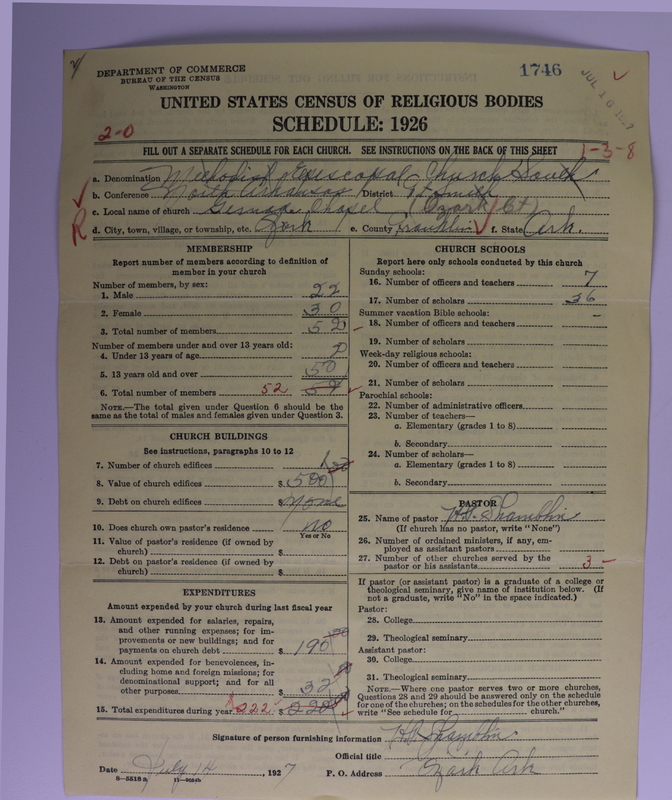 DEPARTMENT OF COMMERCE
BUREAU OF THE CENSUS
WASHINGTON
1746
UNITED STATES CENSUS OF RELIGIOUS BODIES
SCHEDULE: 1926
2-0
FILL OUT A SEPARATE SCHEDULE FOR EACH CHURCH. SEE INSTRUCTIONS ON THE BACK OF THIS SHEET
1-3-8
a. Denomination Methodist Episcopal Church South
b. Conference North Arkansas District Ft Smith
c. Local name of church Chapel (Ozark Ct)
d. City, town, village, or township, etc. Ozark e. County Franklin f. State Ark.
MEMBERSHIP
Report number of members according to definition of
member in your church
Number of members, by sex:
1. Male 22
2. Female 30
3. Total number of members 52
Number of members under and over 13 years old:
4. Under 13 years of age
5. 13 years old and over 50
6. Total number of members 52
NOTE.—The total given under Question 6 should be the
same as the total of males and females given under Question 3.
CHURCH BUILDINGS
See instructions, paragraphs 10 to 12
7. Number of church edifices 1
8. Value of church edifices $ 500
9. Debt on church edifices $ None
10. Does church own pastor's residence no
Yes or No
11. Value of pastor's residence (if owned by
church) $
12. Debt on pastor's residence (if owned by
church) $
EXPENDITURES
Amount expended by your church during last fiscal year
13. Amount expended for salaries, repairs,
and other running expenses; for im-
provements or new buildings; and for
payments on church debt $ 190
14. Amount expended for benevolences, in-
cluding home and foreign missions; for
denominational support; and for all
other purposes $ 32
15. Total expenditures during year $222 $ 220
CHURCH SCHOOLS
Report here only schools conducted by this church
Sunday schools:
16. Number of officers and teachers 7
17. Number of scholars 36
Summer vacation Bible schools:
18. Number of officers and teachers –
19. Number of scholars
Week-day religious schools:
20. Number of officers and teachers
21. Number of scholars
Parochial schools:
22. Number of administrative officers
23. Number of teachers—
a. Elementary (grades 1 to 8)
b. Secondary
24. Number of scholars—
a. Elementary (grades 1 to 8)
b. Secondary
PASTOR
25. Name of pastor Shamblin
(If church has no pastor, write "None")
26. Number of ordained ministers, if any, em-
ployed as assistant pastors
27. Number of other churches served by the
pastor or his assistants 3 –
If pastor (or assistant pastor) is a graduate of a college or
theological seminary, give name of institution below. (If
not a graduate, write "No" in the space indicated.)
Pastor:
28. College
29. Theological seminary
Assistant pastor:
30. College
31. Theological seminary
NOTE.—Where one pastor serves two or more churches,
Questions 28 and 29 should be answered only on the schedule
for one of the churches; on the schedules for the other churches,
write "See schedule for church."
Signature of person furnishing information Shamblin
Official title
Date July 14, 1927 P. O. Address Ozark Ark